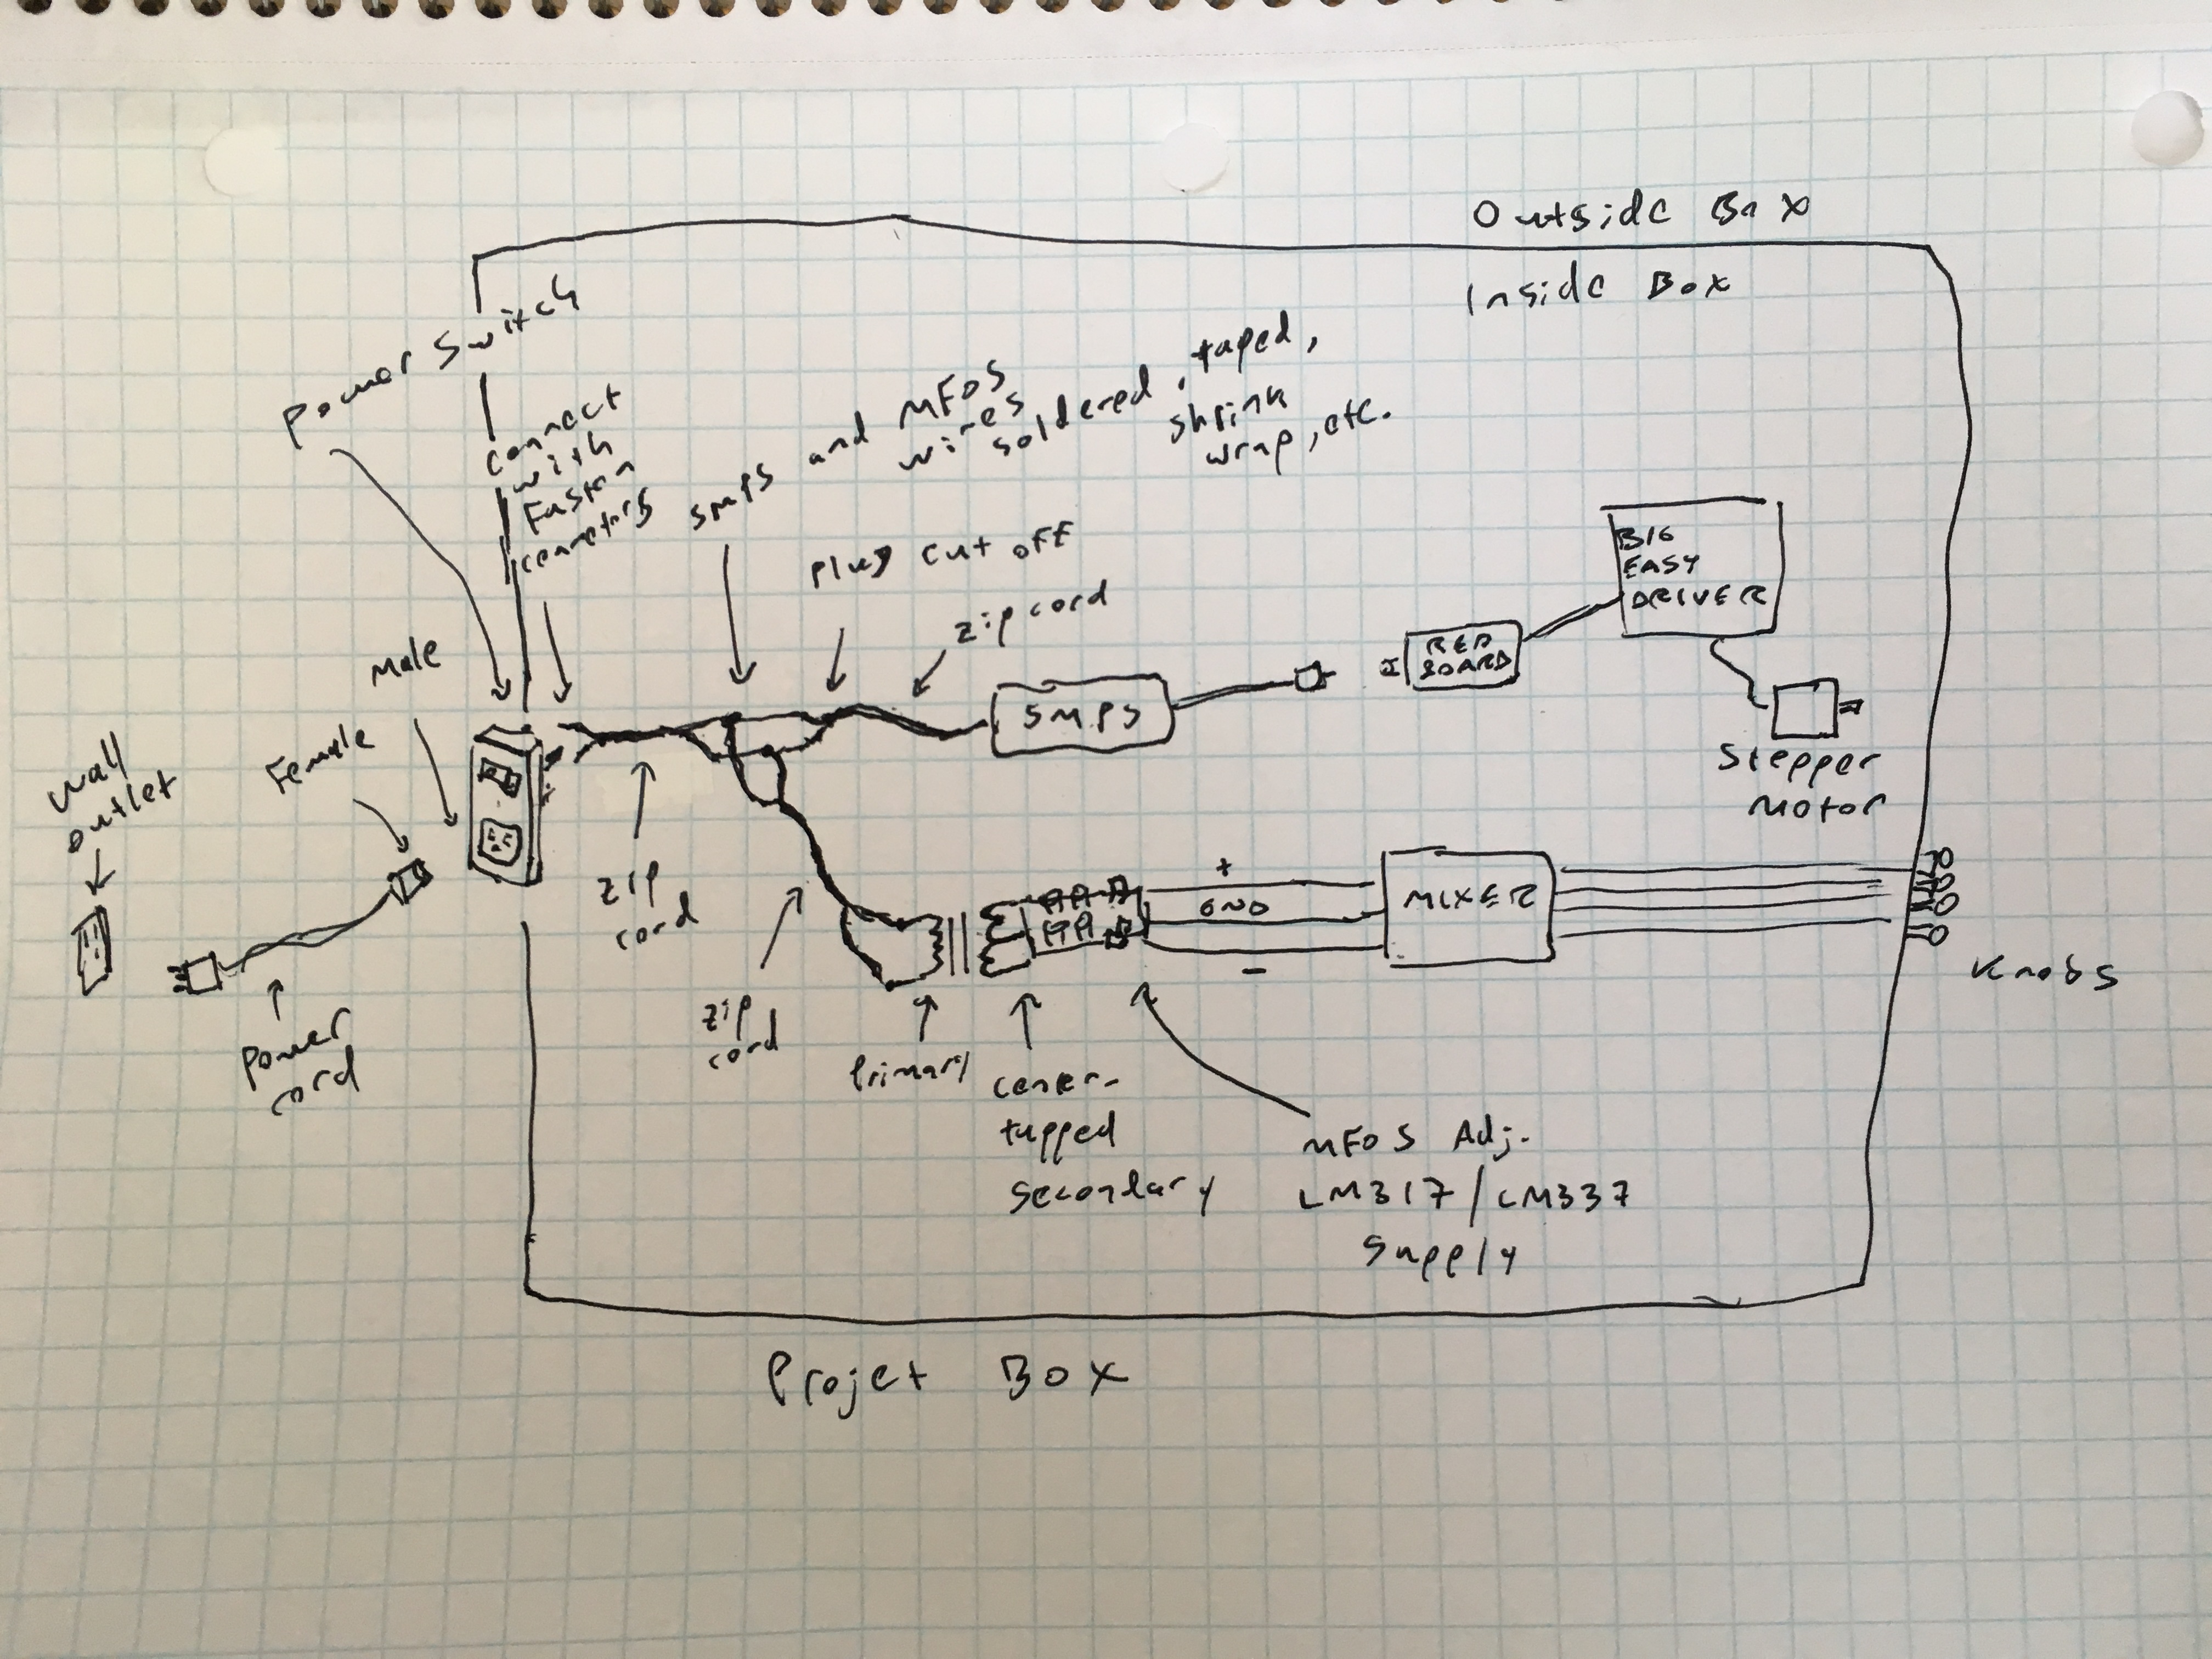 Outside Box
Inside Box
Power Switch
connect
with
Faston
SMPS and MFOS
wires
soldered, taped,
shrink
wrap, etc.
Plug cut off
zip cord
BIG
EASY
DRIVER
RED
BOARD
SMPS
Stepper
Motor
Male
Female
Wall
outlet
Power
cord
zip
cord
zip
cord
+
GND
-
MIXER
Knobs
Primary
center-
tapped
secondary
MFOS Adj.
LM317/LM337
Supply
Projet Box